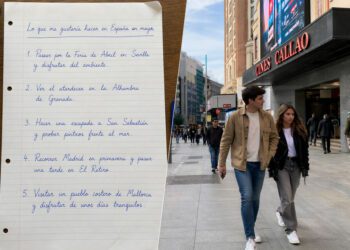 Lo que me gustaría hacer en España en mayo
1. Pasear por la Feria de Abril en Sevilla
y disfrutar del ambiente.
2. Ver el atardecer en la Alhambra
de Granada.
3. Hacer una escapada a San Sebastián
y probar pintxos frente al mar.
4. Recorrer Madrid en primavera y pasar
una tarde en El Retiro.
5. Visitar un pueblo costero de Mallorca
y disfrutar de unos días tranquilos.
CINES CALLAO